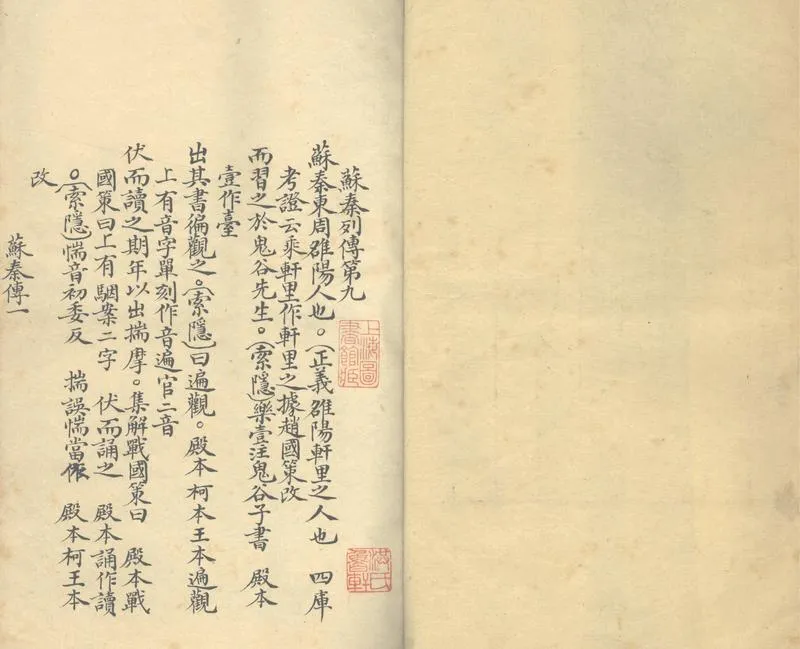 蘇秦列傳第九
蘇秦東周雒陽人也。(正義)雒陽軒里之人也 四庫
考證云乘軒里作軒里之據趙國策改
而習之於鬼谷先生。(索隱)樂壹注鬼谷子書 殿本
壹作臺
出其書徧觀之。(索隱)曰遍觀。殿本柯本王本遍觀
上有音字單刻作音遍官二音
伏而讀之期年以出揣摩。集解戰國策曰 殿本戰
國策曰上有駰案二字 伏而誦之 殿本誦作讀
。(索隱)惴音初委反 揣誤惴當依 殿本柯王本
改
蘇秦傳一
上海圖書館收
洪氏